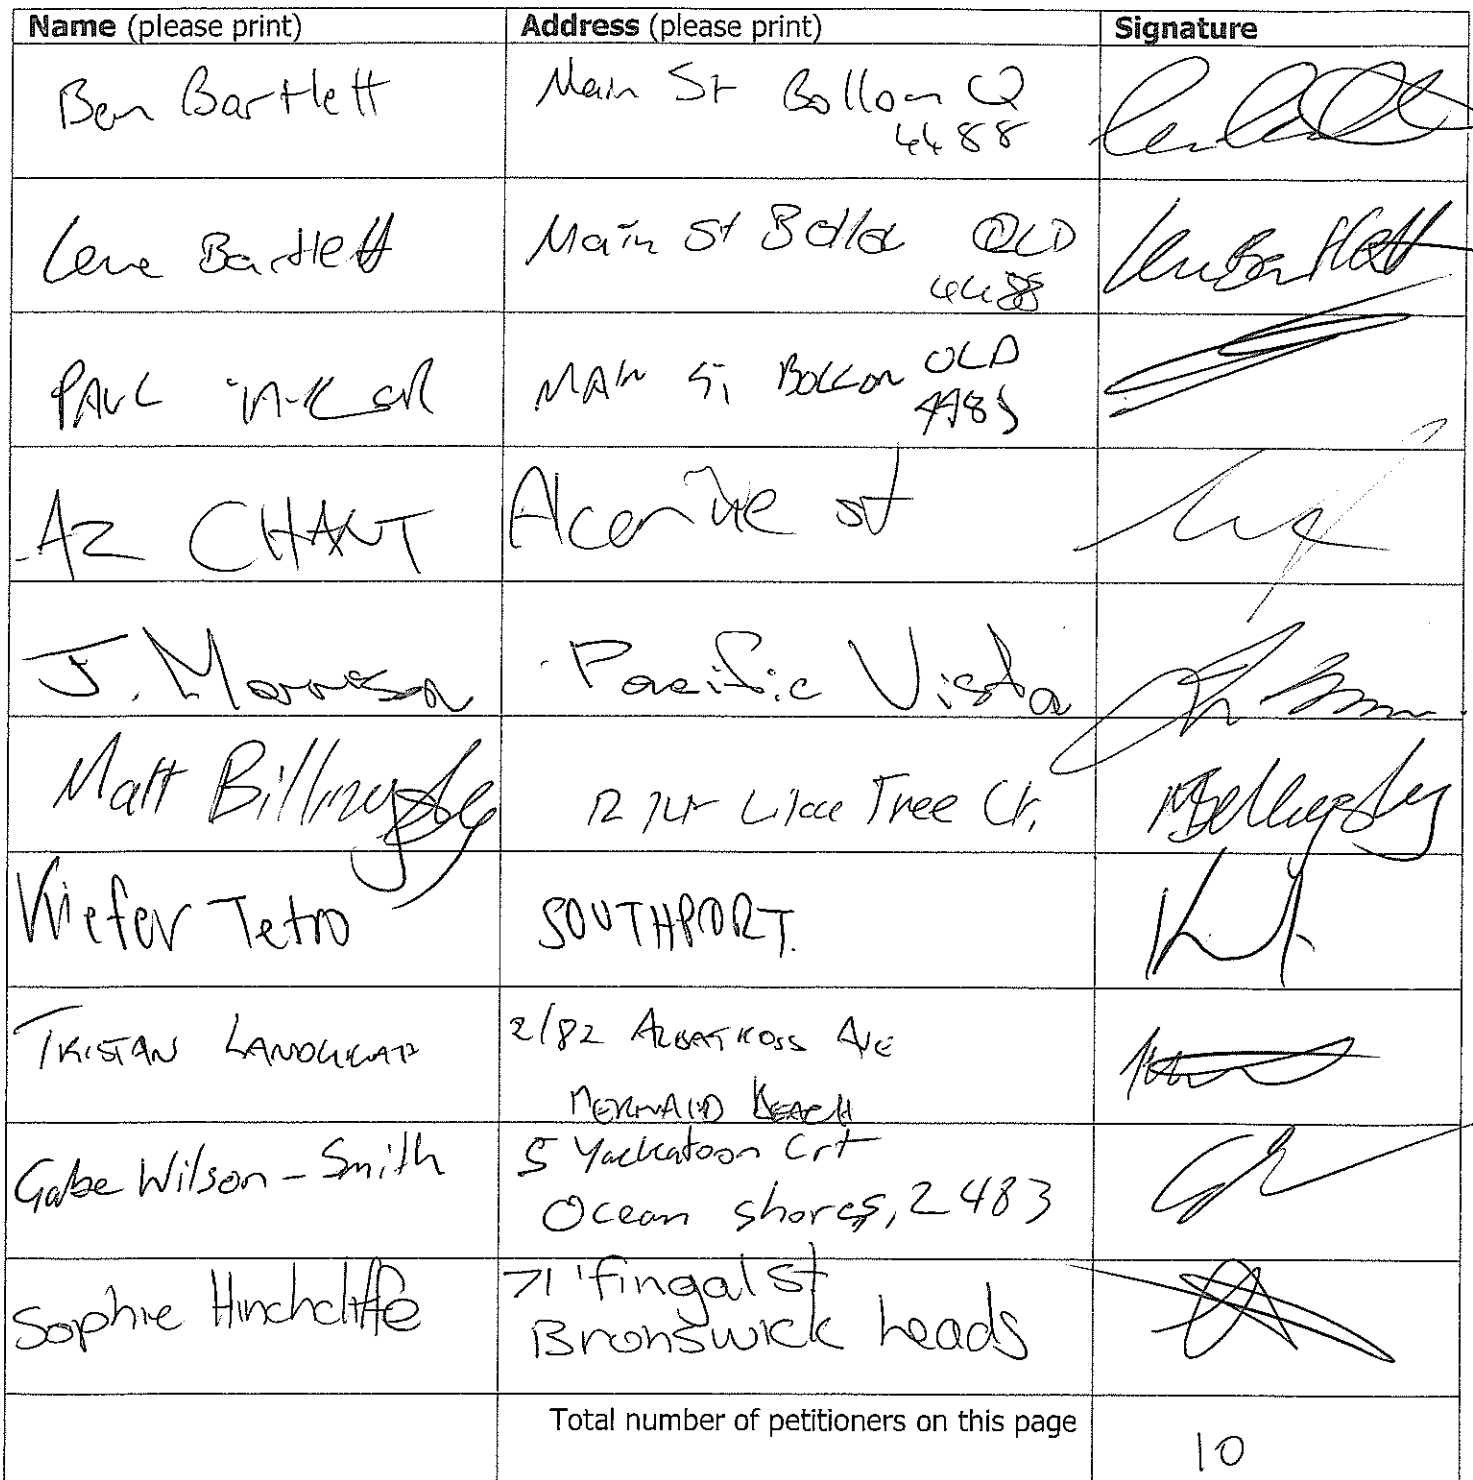 Name (please print) Address (please print) Signature
Ben Bartlett Main St Bollon Q
4488
Bartlett Main St QLD
4488
PAUL MAIN St BOLLON QLD
AZ CHANT St
J. Morrison Pacific Vista
Matt Billingsley Tree Crt.
Kiefer Tetro SOUTHPORT.
TRISTAN 2/82 ALBATROSS AVE
MERMAID BEACH
Gabe Wilson-Smith 5 Yackatoon Crt
Ocean shores, 2483
Sophie Hinchcliffe 71 fingal St
Bronswick heads
Total number of petitioners on this page
10